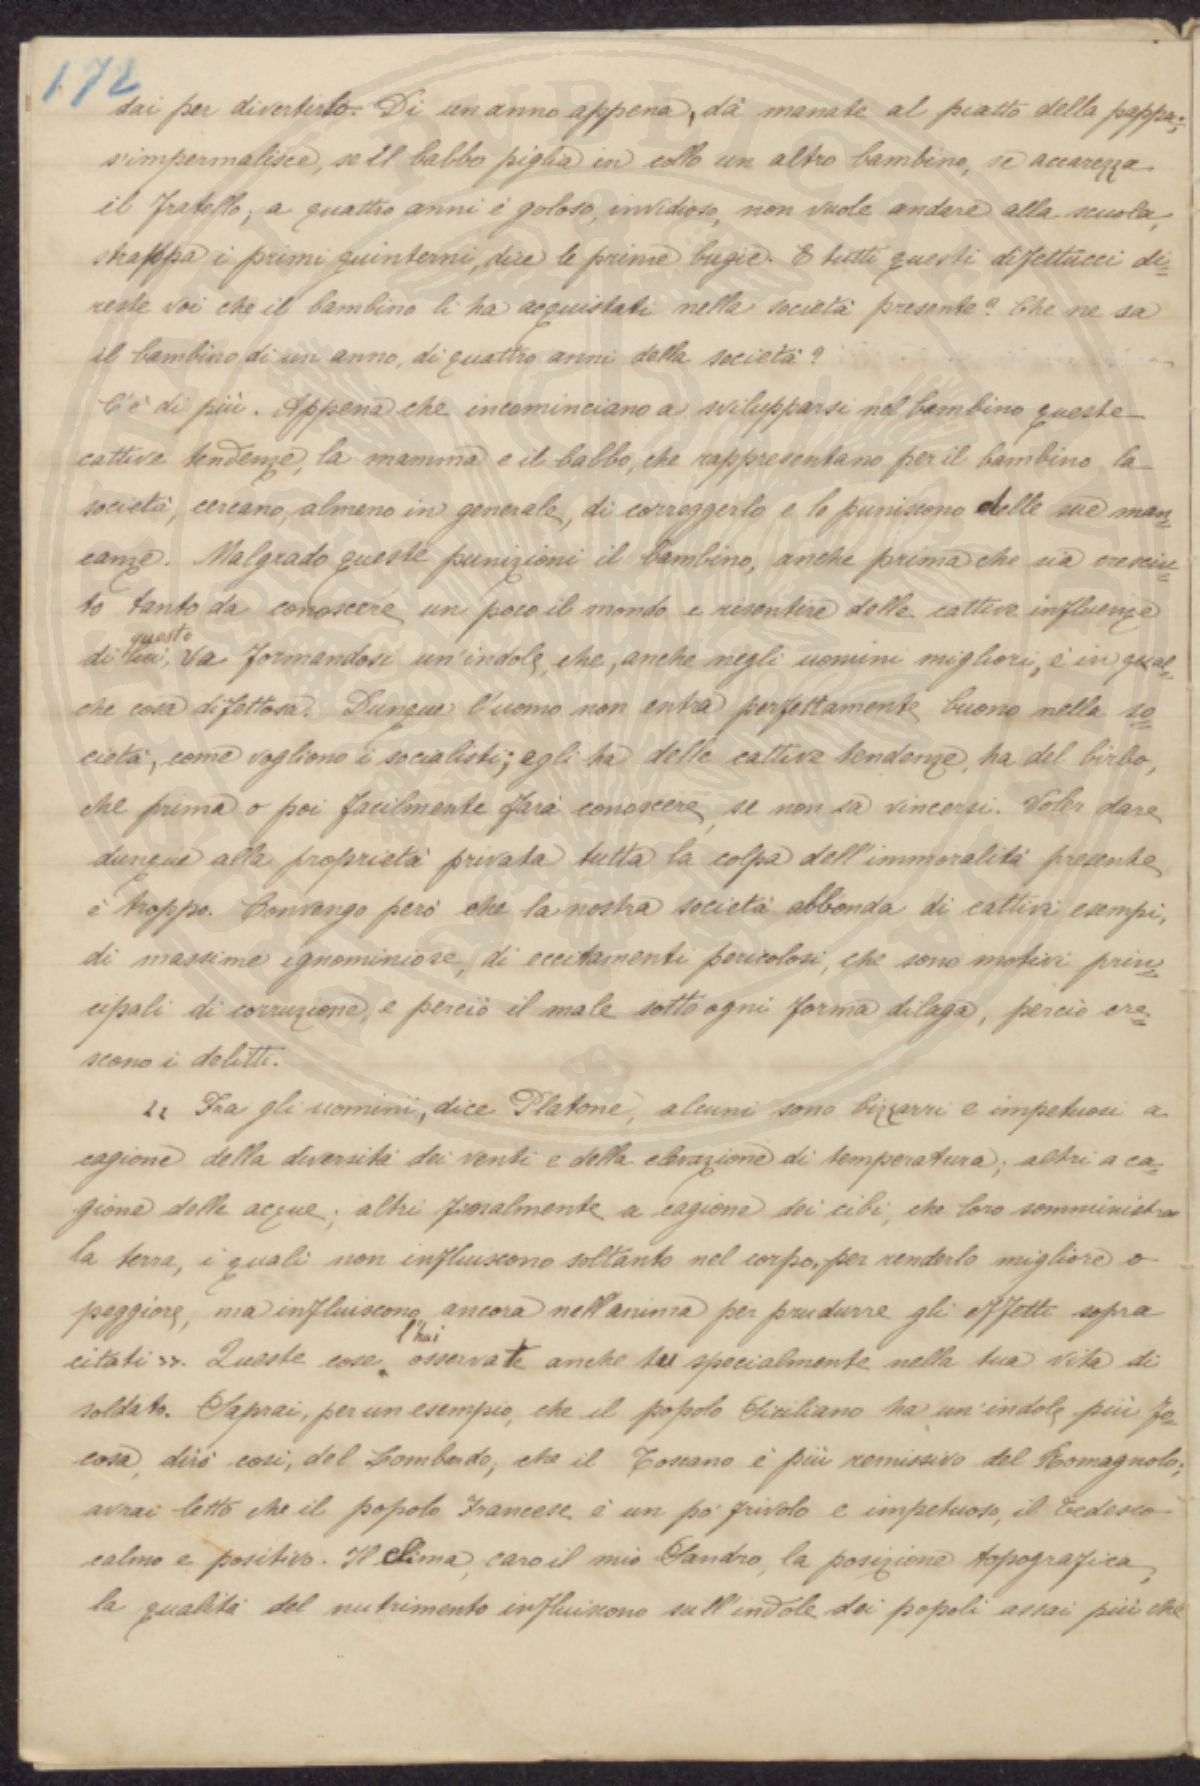 172
dai per divertirlo. Di un anno appena, dà manate al piatto della pappa;
s'impermalisce, se il babbo piglia in collo un altro bambino, se accarezza
il fratello; a quattro anni è goloso, invidioso, non vuole andare alla scuola,
strappa i primi quinterni, dice le prime bugie. E tutti questi difettucci di=
reste voi che il bambino li ha acquistati nella società presente? Che ne sa
il bambino di un anno, di quattro anni della società?
C'è di più. Appena che incominciano a svilupparsi nel bambino queste
cattive tendenze, la mamma e il babbo, che rappresentano per il bambino la
società, cercano, almeno in generale, di correggerlo e lo puniscono delle sue man=
canze. Malgrado queste punizioni il bambino, anche prima che sia cresciu=
to tanto da conoscere un poco il mondo e risentire delle cattive influenze
questo
di lui, va formandosi un'indole, che, anche negli uomini migliori, è in qual=
che cosa difettosa. Dunque l'uomo non entra perfettamente buono nella so=
cietà, come vogliono i socialisti; egli ha delle cattive tendenze, ha del birbo,
che prima o poi facilmente farà conoscere, se non sa vincersi. Voler dare
dunque alla proprietà privata tutta la colpa dell'immoralità presente,
è troppo. Convengo però che la nostra società abbonda di cattivi esempi,
di massime ignominiose, di eccitamenti pericolosi, che sono motivi prin=
cipali di corruzione, e perciò il male sotto ogni forma dilaga, perciò cre=
scono i delitti.
"Fra gli uomini, dice Platone, alcuni sono bizzarri e impetuosi a
cagione della diversità dei venti e della elevazione di temperatura; altri a ca=
gione delle acque; altri finalmente a cagione dei cibi, che loro somministra
la terra, i quali non influiscono soltanto nel corpo, per renderlo migliore o
peggiore, ma influiscono ancora nell'anima per prudurre gli effetti sopra
l'hai
citati". Queste cose osservate anche tu specialmente nella tua vita di
soldato. Saprai, per un esempio, che il popolo Siciliano ha un'indole più fo=
cosa, dirò così, del Lombardo; che il Toscano è più remissivo del Romagnolo;
avrai letto che il popolo Francese è un po' frivolo e impetuoso, il Tedesco
calmo e positivo. Il clima, caro il mio Sandro, la posizione topografica,
la qualità del nutrimento influiscono sull'indole dei popoli assai più che